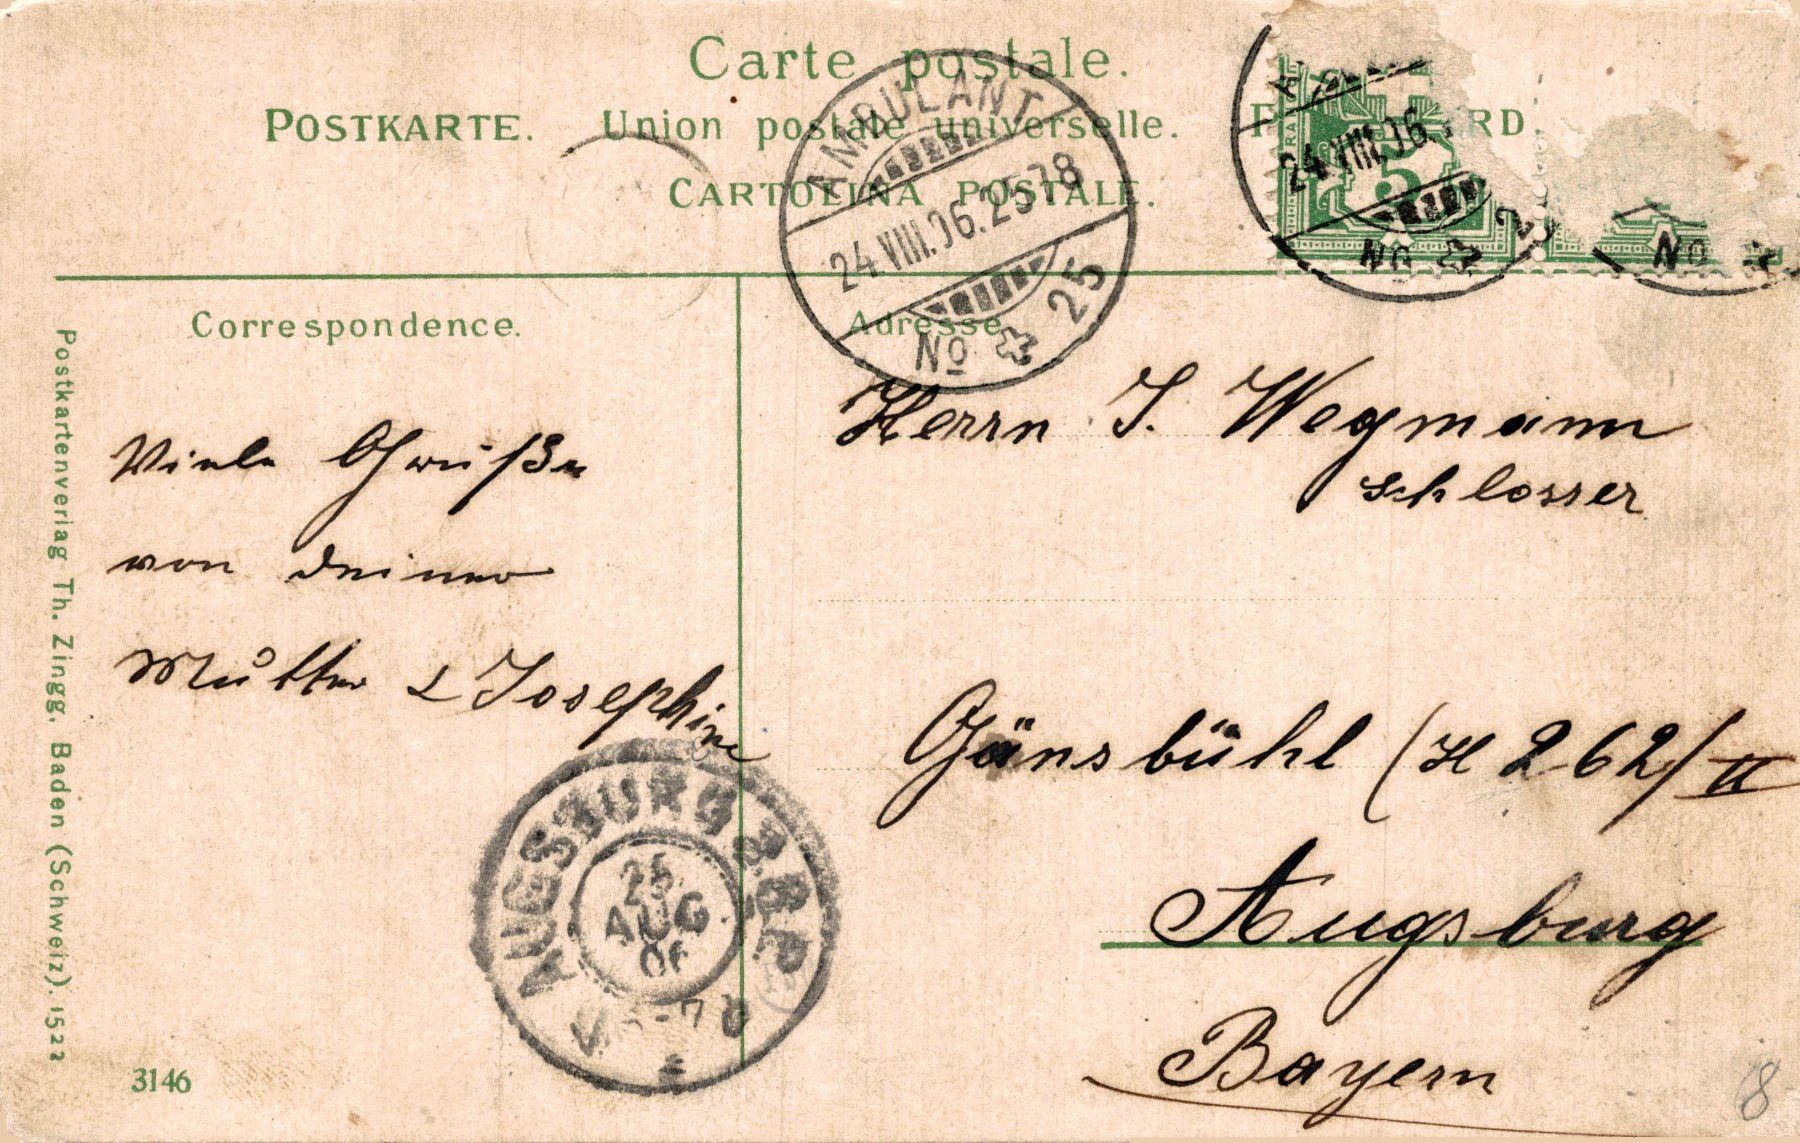 Carte postale.
POSTKARTE. Union postale universelle. RD.
CARTOLINA POSTALE.
AMBULANT
24.VIII.06.2578
No 25
24.VIII.06.
5
No 2
No
Correspondence.
Adresse
Viele Grüße
von deiner
Mutter & Josephine
Herrn J. Wegmann
Schlosser
Gänsbühl (H 262/II
Augsburg
Bayern
AUGSBURG
25
AUG
06
Postkartenverlag Th. Zingg, Baden (Schweiz). 1522
3146
8